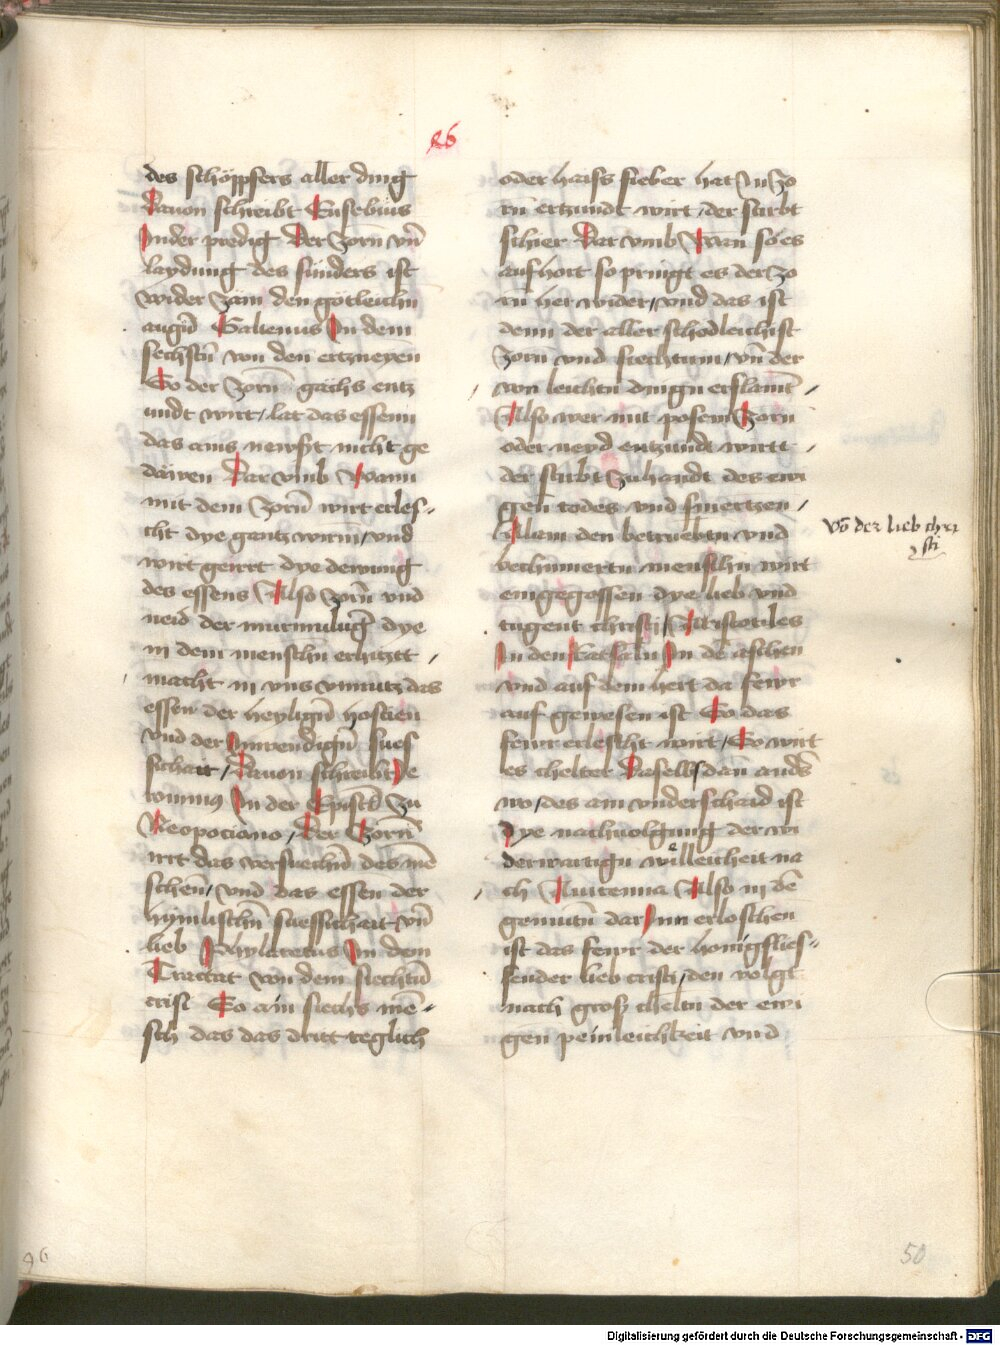 46
des schöppfers aller ding
Dauon schreibt Eusebius
In der predig Der Zorn vn̄
laydung des sünders ist
wider Zäm den götleichn̄
augn̄ Galienus In dem
sechstn̄ von den ertzneyen
So der Zorn gachs entz
undt wirt / lat das essenn
das ains newsst nicht ge
däwen Dar vmb Wann
mit dem Zorn̄ wirt erles-
cht dye gantz wirm / vnd
wirt geirrt dye dewung
des essens Also Zorn̄ vnd
neid der murmuluḡ dye
in dem menschn̄ erhitztt /
macht in vns vnnutz das
essen der heylign̄ hostien
vnd der Inwendign̄ sues
sichait / Dauon schreibt Je
ronimus In der Epistel Zu
Neopociano / Der Zorn̄
irrt das versuechn̄ des mē
schen̄ / vnd das essen der
hymlischn̄ suessichait vn̄
lieb Phylaretus In dem
Tractat von dem siechtū
crist So ain siechs mē-
sch das das dritt teglich
oder haiss fieber hat In Zo
rn ertzundt wirt / der stirbt
schier Dar vmb Wan so es
aufhort so pringt es der Zo
rn her wider / vnd das ist
denn der aller schodleichist
Zorn vnd siechtum / vn̄ der
von leichtn̄ dingn erflamt /
Also wer mit posem Zorn
oder neyd entzundt wirtt /
der stirbt Zuhandt des ewi
gen todes vnd smertzen /
Allain den betruebtn vnd
bechumertn menschn wirt
eingegossen dye lieb vnd
tugent christi / Aristotiles
In den Ratsaln In dē aschen
vnd auf dem hert da fewr
auf gewesen ist So das
fewr erlescht wirt / So wirt
es chelter Daselbs dan anders
wo / des am vnderschaid ist
Dye nachuolgung der wi
derwartign̄ wͤlleicheit na
ch Auicenna Also in dē
gemutn̄ dar Inn erloschen
ist das fewr der honigflies-
sender lieb cristi / den volgt
nach gross cheltn der ewi
gen peinleichkeit vnd
Vō der lieb chri
sti
96
50
Digitalisierung gefördert durch die Deutsche Forschungsgemeinschaft - DFG